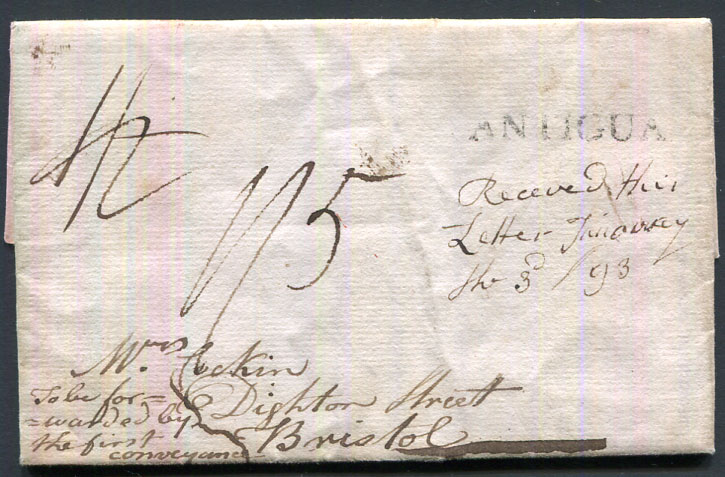 ANTIGUA
1/5
Receved this
Letter Jinauarey
the 3d / 93
Mrs Cockin
Dighton Street
Bristol
To be for=
=warded by
the first
conveyance